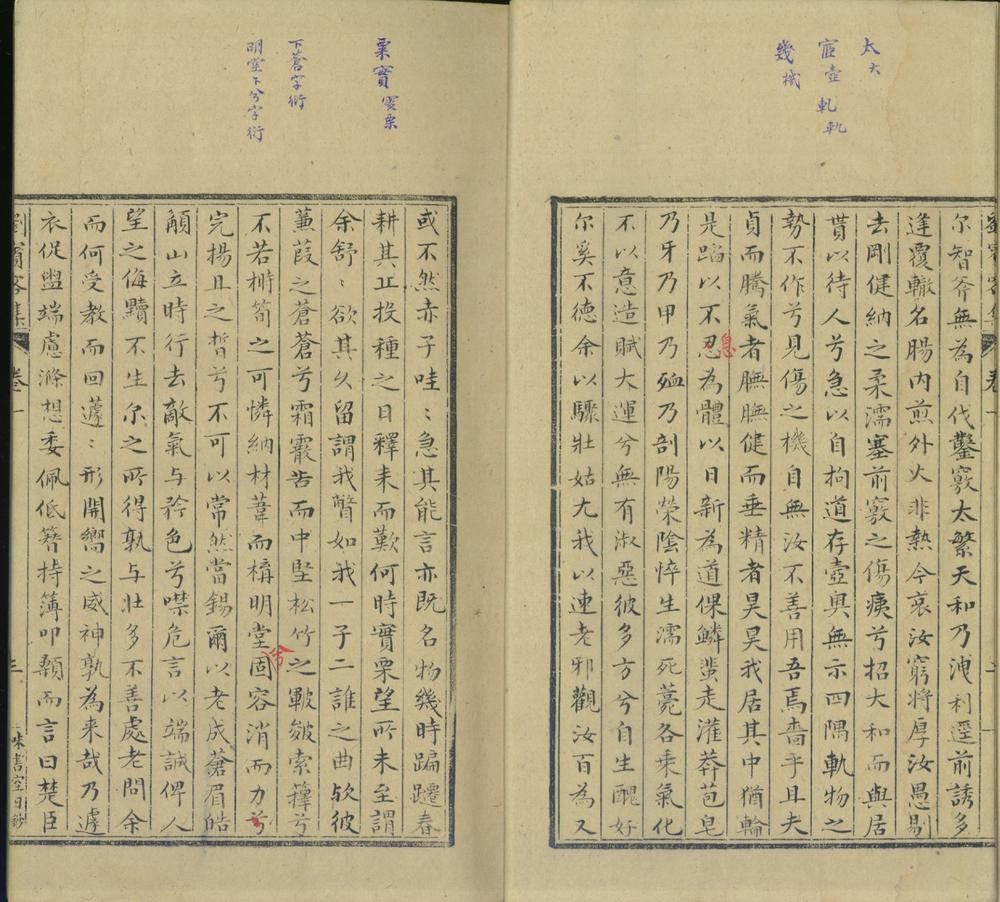 太大
寍壺 軋軌
幾機
尔智斧無為自代鑿竅太繁天和乃洩利逕前誘多
逢覆轍名腸内煎外火非熱今哀汝窮將厚汝愚剔
去剛健納之柔濡塞前竅之傷痍兮招大和而與居
貰以待人兮急以自拘道存壺奥無示四隅軌物之
勢不作兮見傷之機自無汝不善用吾焉嗇乎且夫
貞而騰氣者膴膴健而垂精者昊昊我居其中猶輪
是蹈以不忍為體以日新為道倮鱗蜚走灌莽苞皂
息
乃牙乃甲乃殈乃剖陽榮陰悴生濡死薧各乘氣化
不以意造賦大運兮無有淑惡彼多方兮自生醜好
尔奚不德余以驟壯姑尤我以速老邪觀汝百為又
粟實 實栗
下蒼字衍
明堂下兮字衍
或不然赤子哇〻急其能言亦既名物幾時蹁躚春
耕其丘投種之日釋耒而歎何時實栗望所未至謂
余舒〻欲其久留謂我瞥如我一子二誰之曲欤彼
蒹葭之蒼蒼兮霜霰苦而中堅松竹之皸皴索籜兮
不若榯筍之可憐納材葦而構明堂固容消而力兮
兮
完揚且之晳兮不可以常然當錫爾以老成蒼眉皓
䫇山立時行去敵氣与矜色兮噤危言以端誠俾人
望之侮黷不生尔之所得孰与壮多不善處老問余
而何受教而回遽〻形開嚮之威神孰為来哉乃遽
衣促盥端慮滌想委佩低簪持簿叩顙而言曰楚臣
劉賓客集 卷一 三 味書室日鈔